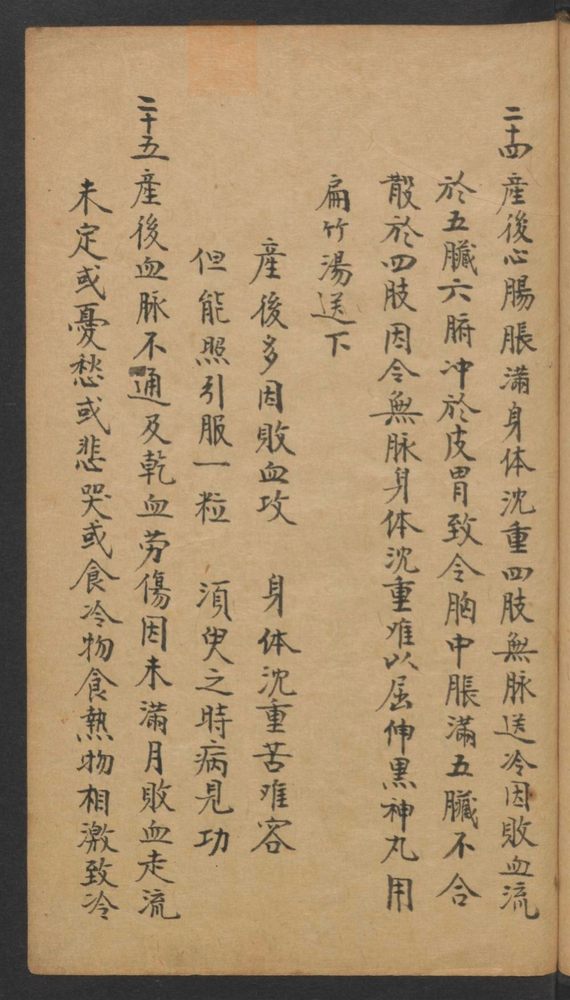 二十四產後心腸脹滿身体沈重四肢無脉送冷因敗血流
於五臟六腑冲於皮胃致令胸中脹滿五臟不合
散於四肢因令無脉身体沈重难以屈伸黒神丸用
扁竹湯送下
產後多因敗血攻　身体沈重苦难容
但能照引服一粒　須臾之時病見功
二十五產後血脉不通及乾血劳傷因未滿月敗血走流
未定或憂愁或悲哭或食冷物食熱物相激致冷